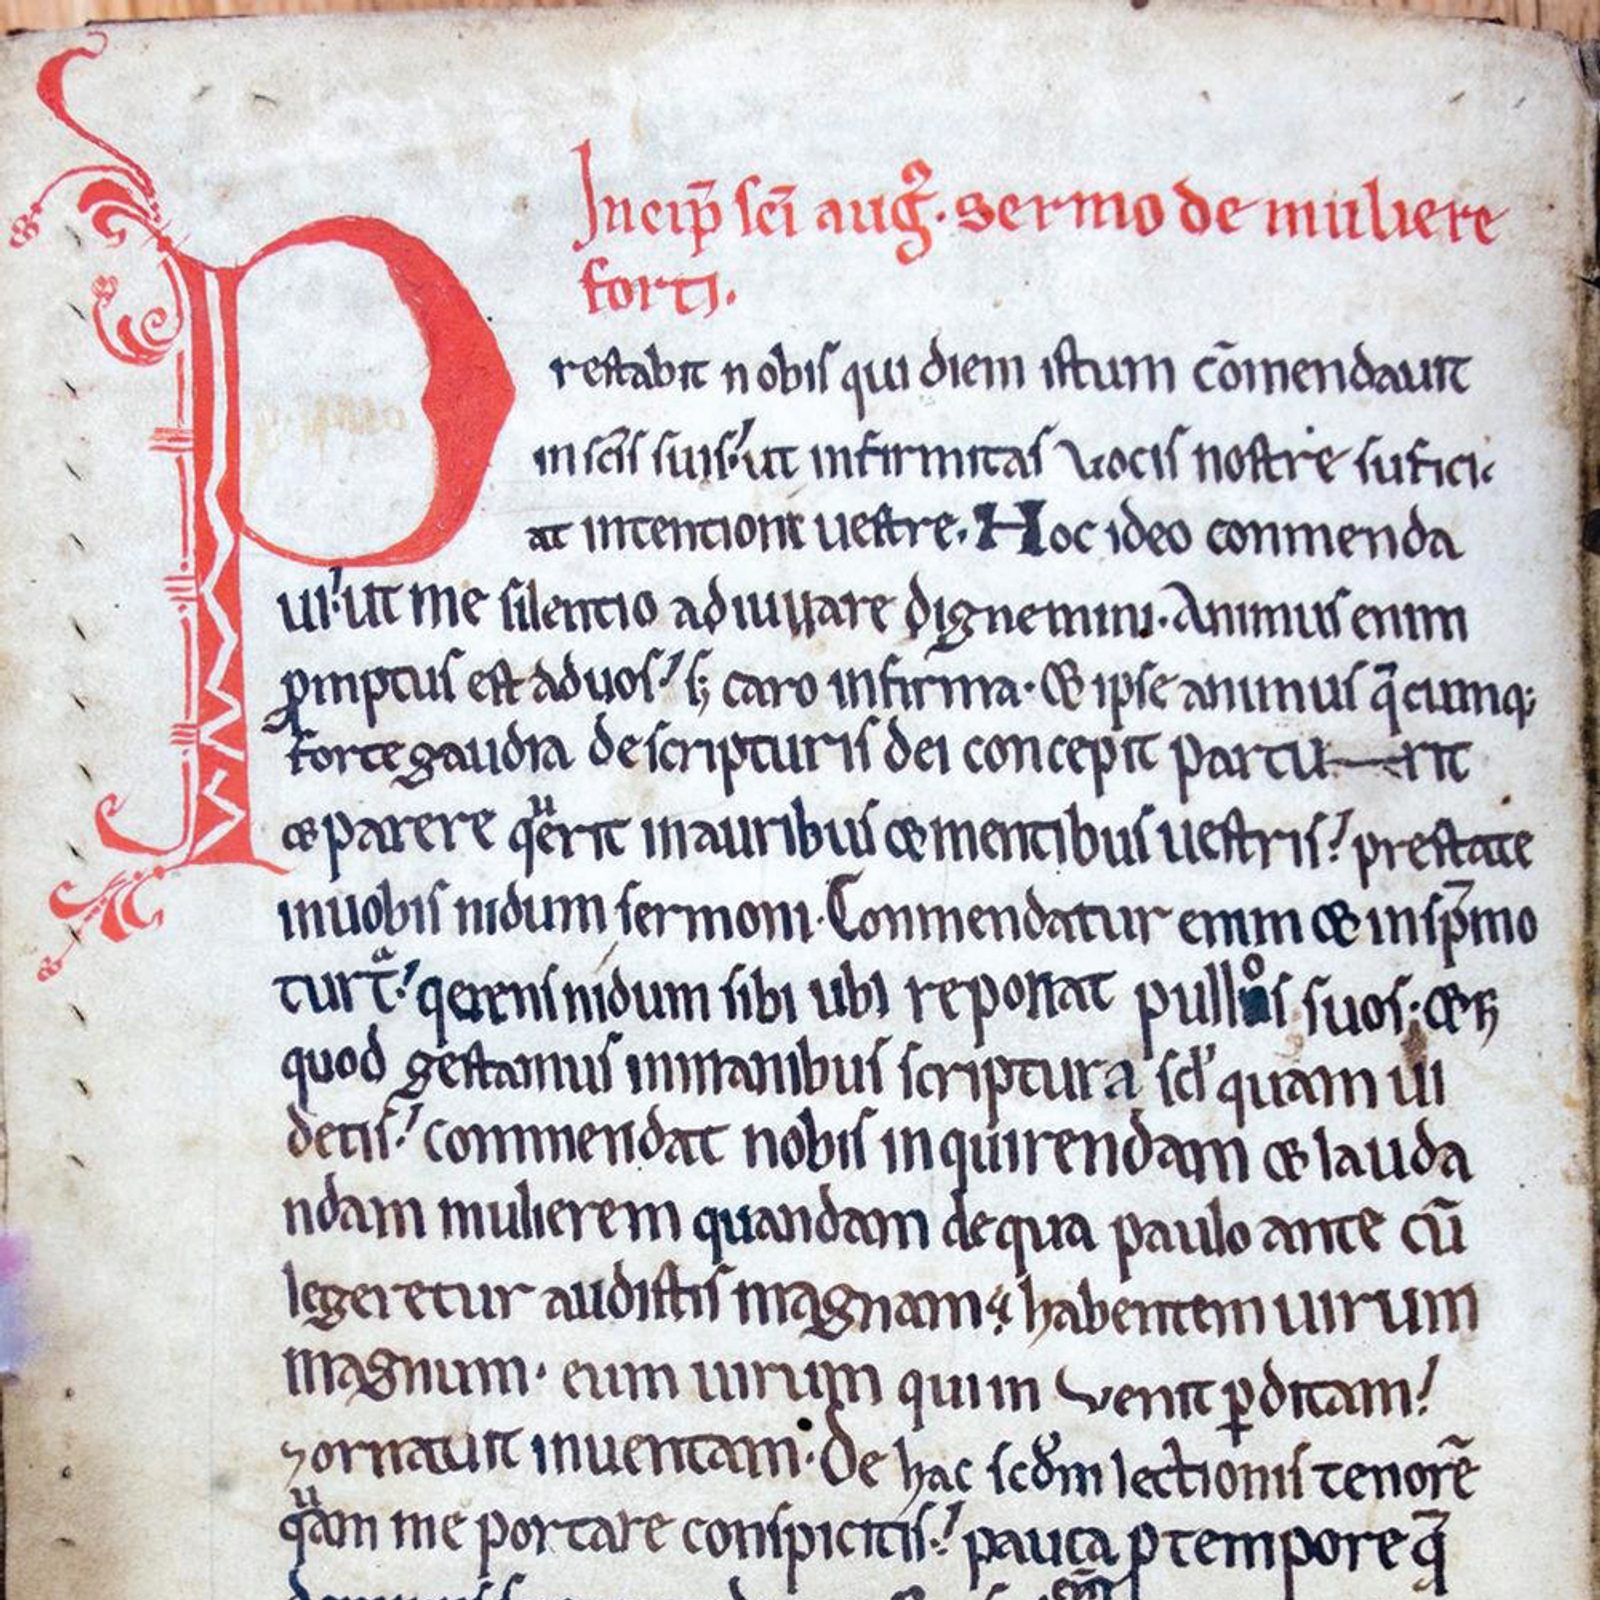 Incip̄ sc̄i aug᷒. sermo de muliere
forti.
Prestabit nobis qui diem istum cōmendauit
in sc̄is suis ut infirmitas vocis nostre sufici
at intentioni uestre. Hoc ideo conmenda
ui ut me silentio adiuuare dignemini. Animus enim
ꝓmptus est ad uos s; caro infirma. & ipse animus q̄cumq;
forte gaudia de scripturis dei concepit partu—rit
& parere qͧerit in auribus & mentibus uestris prestate
in uobis nidum sermoni. Conmendatur enim & in sp̄mo
turtͣ. qerens nidum sibi ubi reponat pullos suos. & h
quod gestamus in manibus scriptura scꝉ quam ui
detis commendat nobis inquirendam & lauda
ndam mulierem quandam de qua paulo ante cū
legeretur audistis magnam habentem uirum
magnum. eum uirum qui in venit ꝑditam
⁊ ornauit inuentam. De hac scd̄m lectionis tenorē
qͧam me portare conspicitis pauca ꝓ tempore q̄